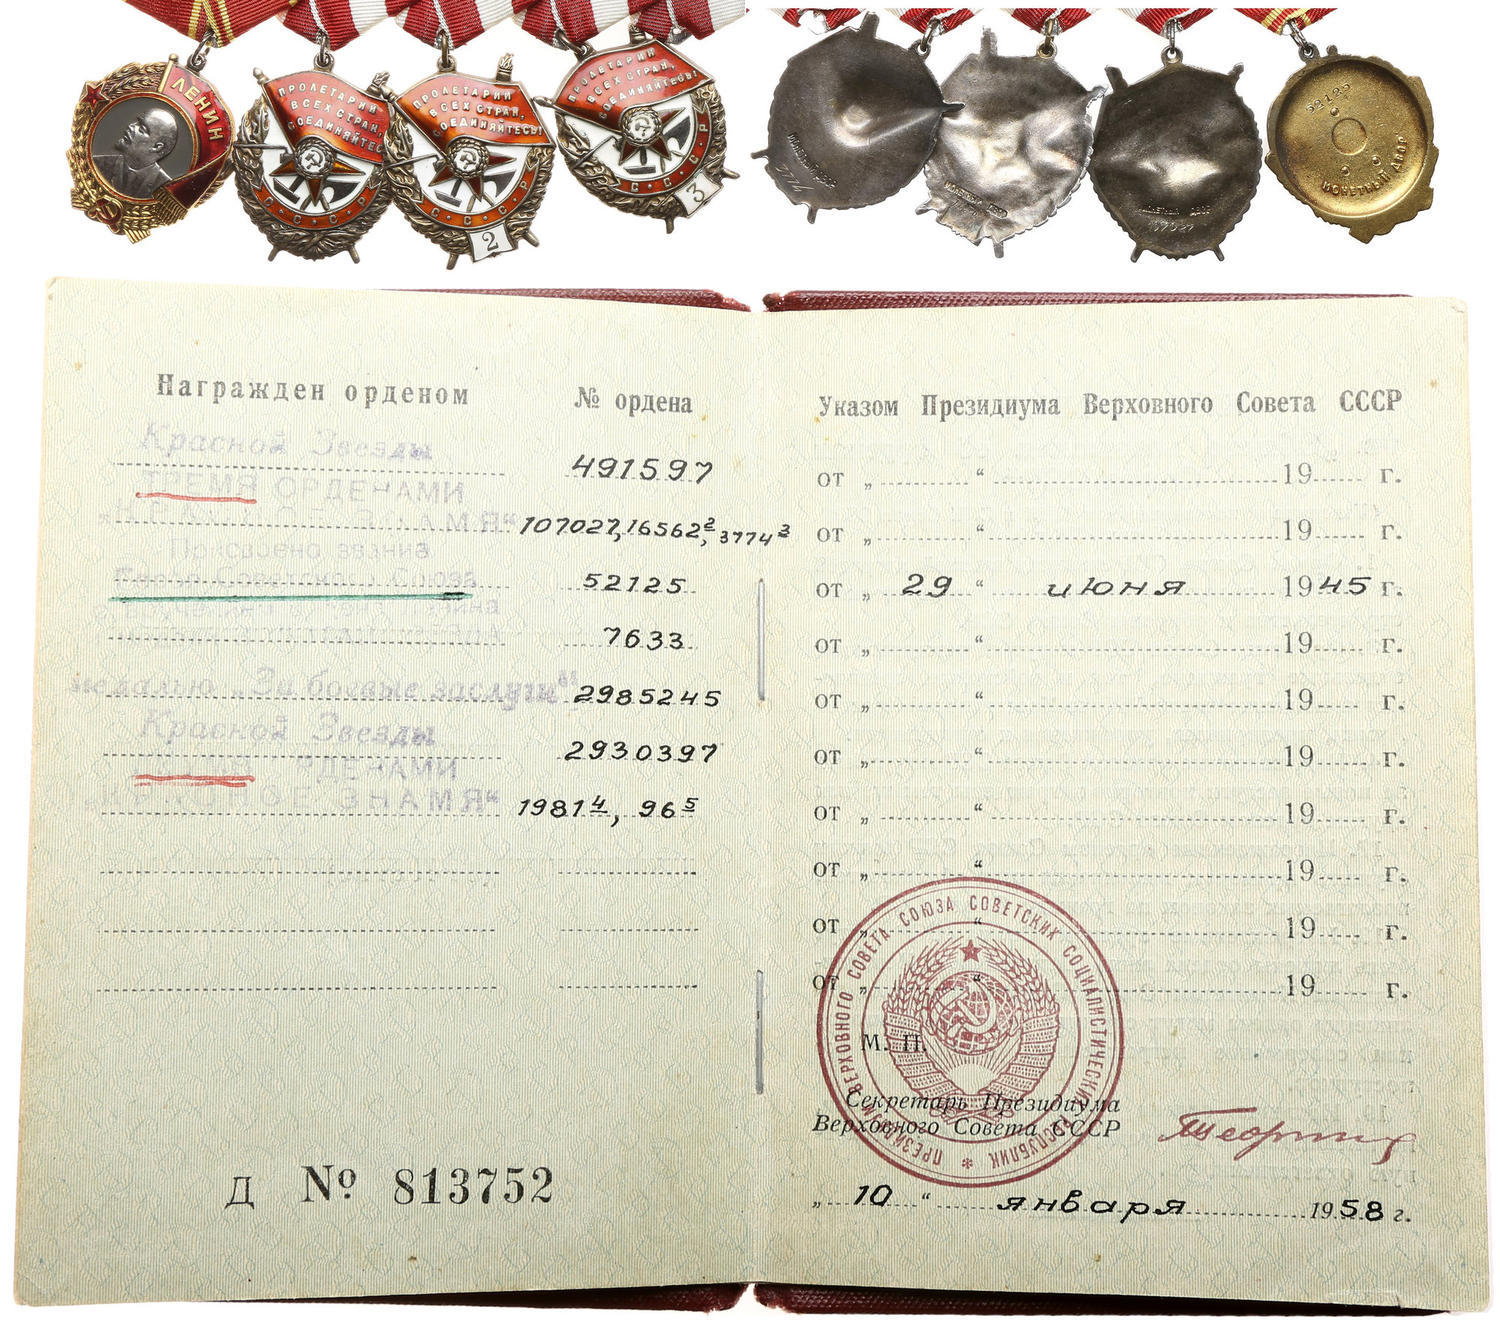 ЛЕНИН
ПРОЛЕТАРИИ
ВСЕХ СТРАН,
СОЕДИНЯЙТЕСЬ
С·С·С·Р
ПРОЛЕТАРИИ
ВСЕХ СТРАН,
СОЕДИНЯЙТЕСЬ!
С·С·С·Р
2
ПРОЛЕТАРИИ
ВСЕХ СТРАН,
СОЕДИНЯЙТЕСЬ!
С·С·С·Р
3
МОНЕТНЫЙ ДВОР
МОНЕТНЫЙ ДВОР
МОНЕТНЫЙ ДВОР
107027
52125
МОНЕТНЫЙ ДВОР
Награжден орденом № ордена
Красной Звезды 491597
ТРЕМЯ ОРДЕНАМИ
„КРАСНОЕ ЗНАМЯ“ 107027, 16562 2, 3774 3
Присвоено звание
Героя Советского Союза 52125
7633
медалью „За боевые заслуги“ 2985245
Красной Звезды 2930397
ОРДЕНАМИ
„КРАСНОЕ ЗНАМЯ“ 1981 4, 96 5
Д № 813752
Указом Президиума Верховного Совета СССР
от „ “ 19 г.
от „ “ 19 г.
от „ 29 “ июня 1945 г.
от „ “ 19 г.
от „ “ 19 г.
от „ “ 19 г.
от „ “ 19 г.
от „ “ 19 г.
от „ “ 19 г.
от „ “ 19 г.
М. П.
ПРЕЗИДИУМ ВЕРХОВНОГО СОВЕТА СОЮЗА СОВЕТСКИХ СОЦИАЛИСТИЧЕСКИХ РЕСПУБЛИК
Секретарь Президиума
Верховного Совета СССР
„ 10 “ января 1958 г.